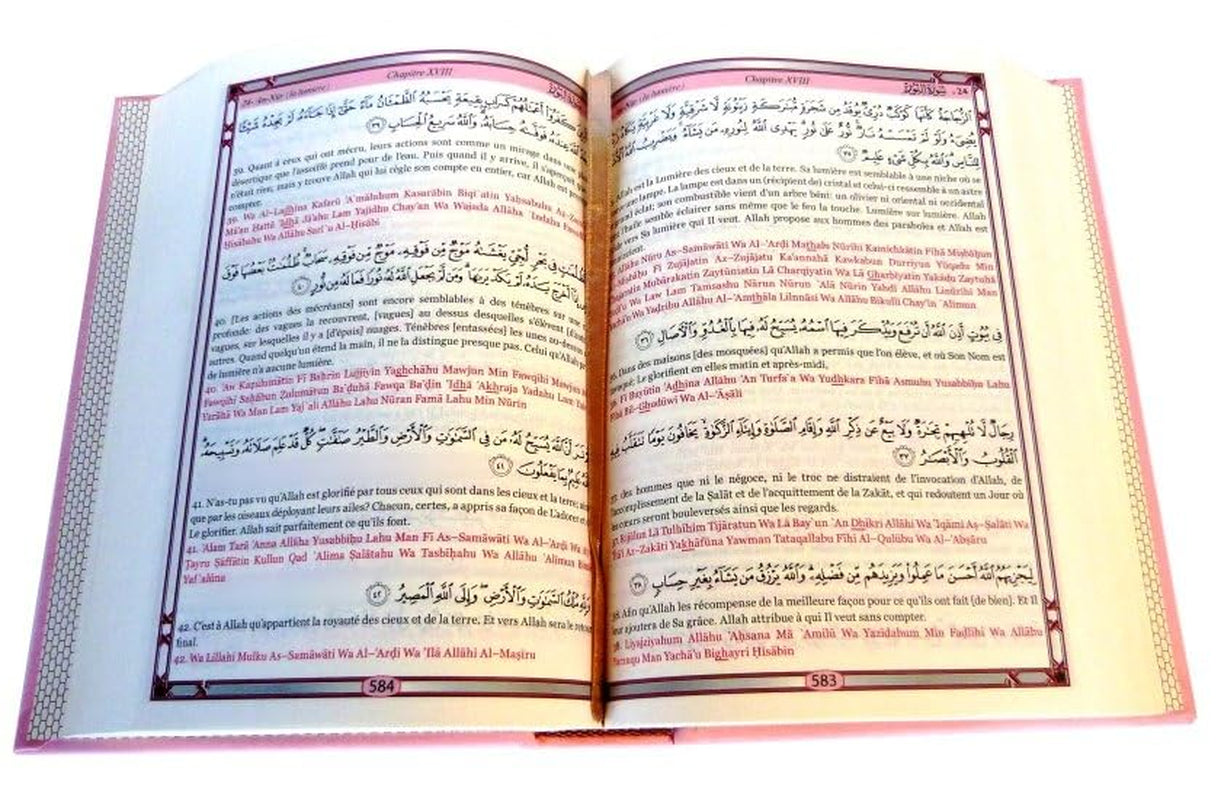 24 - سورة النور
Chapitre XVIII
(la lumière)
ٱلزُّجَاجَةُ كَأَنَّهَا كَوْكَبٌ دُرِّيٌّ يُوقَدُ مِن شَجَرَةٍ مُّبَٰرَكَةٍ زَيْتُونَةٍ لَّا شَرْقِيَّةٍ وَلَا غَرْبِيَّةٍ يَكَادُ
يُضِىٓءُ وَلَوْ لَمْ تَمْسَسْهُ نَارٌ نُّورٌ عَلَىٰ نُورٍ يَهْدِى ٱللَّهُ لِنُورِهِۦ مَن يَشَآءُ وَيَضْرِبُ ٱللَّهُ
لِلنَّاسِ وَٱللَّهُ بِكُلِّ شَىْءٍ عَلِيمٌ ٣٥
Allah est la Lumière des cieux et de la terre. Sa lumière est semblable à une niche où se
une lampe. La lampe est dans un (récipient de) cristal et celui-ci ressemble à un astre
éclat; son combustible vient d'un arbre béni: un olivier ni oriental ni occidental
l'huile semble éclairer sans même que le feu la touche. Lumière sur lumière. Allah
vers Sa lumière qui Il veut. Allah propose aux hommes des paraboles et Allah est
Allāhu Nūru As-Samāwāti Wa Al-'Arđi Mathalu Nūrihi Kamichkātin Fīhā Mişbāĥun
Fī Zujājatin Az-Zujājatu Ka'annahā Kawkabun Durrīyun Yūqadu Min
Mubārakatin Zaytūniatin Lā Charqiyatin Wa Lā Gharbīyatin Yakādu Zaytuhā
Wa Law Lam Tamsashu Nārun Nūrun `Alá Nūrin Yahdī Allāhu Linūrihi Man
Wa Yađribu Allāhu Al-'Amthāla Lilnnāsi Wa Allāhu Bikulli Chay'in `Alimun
فِى بُيُوتٍ أَذِنَ ٱللَّهُ أَن تُرْفَعَ وَيُذْكَرَ فِيهَا ٱسْمُهُۥ يُسَبِّحُ لَهُۥ فِيهَا بِٱلْغُدُوِّ وَٱلْءَاصَالِ ٣٦
Dans des maisons [des mosquées] qu'Allah a permis que l'on élève, et où Son Nom est
Le glorifient en elles matin et après-midi,
Fī Buyūtin 'Adhina Allāhu 'An Turfa`a Wa Yudhkara Fīhā Asmuhu Yusabbiĥu Lahu
Bil-Ghudūwi Wa Al-'Āşāli
رِجَالٌ لَّا تُلْهِيهِمْ تِجَٰرَةٌ وَلَا بَيْعٌ عَن ذِكْرِ ٱللَّهِ وَإِقَامِ ٱلصَّلَوٰةِ وَإِيتَآءِ ٱلزَّكَوٰةِ يَخَافُونَ يَوْمًا تَتَقَلَّبُ فِيهِ
ٱلْقُلُوبُ وَٱلْأَبْصَٰرُ ٣٧
des hommes que ni le négoce, ni le troc ne distraient de l'invocation d'Allah, de
l'accomplissement de la Şalāt et de l'acquittement de la Zakāt, et qui redoutent un Jour où
les cœurs seront bouleversés ainsi que les regards.
Rijālun Lā Tulhīhim Tijāratun Wa Lā Bay`un `An Dhikri Allāhi Wa 'Iqāmi Aş-Şalāti Wa
Az-Zakāti Yakhāfūna Yawman Tataqallabu Fīhi Al-Qulūbu Wa Al-'Abşāru
لِيَجْزِيَهُمُ ٱللَّهُ أَحْسَنَ مَا عَمِلُوا۟ وَيَزِيدَهُم مِّن فَضْلِهِۦ وَٱللَّهُ يَرْزُقُ مَن يَشَآءُ بِغَيْرِ حِسَابٍ ٣٨
Afin qu'Allah les récompense de la meilleure façon pour ce qu'ils ont fait [de bien]. Et Il
leur ajoutera de Sa grâce. Allah attribue à qui Il veut sans compter.
Liyajziyahum Allāhu 'Aĥsana Mā `Amilū Wa Yazīdahum Min Fađlihi Wa Allāhu
Yarzuqu Man Yachā'u Bighayri Ĥisābin
583
Chapitre XVIII
24- An-Nūr (la lumière)
كَفَرُوٓا۟ أَعْمَٰلُهُمْ كَسَرَابٍۭ بِقِيعَةٍ يَحْسَبُهُ ٱلظَّمْـَٔانُ مَآءً حَتَّىٰٓ إِذَا جَآءَهُۥ لَمْ يَجِدْهُ شَيْـًٔا
عِندَهُۥ فَوَفَّىٰهُ حِسَابَهُۥ وَٱللَّهُ سَرِيعُ ٱلْحِسَابِ ٣٩
39. Quant à ceux qui ont mécru, leurs actions sont comme un mirage dans une
désertique que l'assoiffé prend pour de l'eau. Puis quand il y arrive, il s'aperçoit
n'était rien; mais y trouve Allah qui lui règle son compte en entier, car Allah est
compter.
39. Wa Al-Ladhīna Kafarū 'A`māluhum Kasarābin Biqī`atin Yaĥsabuhu
Mā'an Ĥattá 'Idhā Jā'ahu Lam Yajidhu Chay'an Wa Wajada Allāha `Indahu
Ĥisābahu Wa Allāhu Sarī`u Al-Ĥisābi
فِى بَحْرٍ لُّجِّىٍّ يَغْشَىٰهُ مَوْجٌ مِّن فَوْقِهِۦ مَوْجٌ مِّن فَوْقِهِۦ سَحَابٌ ظُلُمَٰتٌۢ بَعْضُهَا فَوْقَ
إِذَآ أَخْرَجَ يَدَهُۥ لَمْ يَكَدْ يَرَىٰهَا وَمَن لَّمْ يَجْعَلِ ٱللَّهُ لَهُۥ نُورًا فَمَا لَهُۥ مِن نُّورٍ ٤٠
40. [Les actions des mécréants] sont encore semblables à des ténèbres sur une
profonde: des vagues la recouvrent, [vagues] au dessus desquelles s'élèvent
vagues, sur lesquelles il y a [d'épais] nuages. Ténèbres [entassées] les unes au-dessus
autres. Quand quelqu'un étend la main, il ne la distingue presque pas. Celui qu'Allah
de lumière n'a aucune lumière.
40. 'Aw Kažulumātin Fī Baĥrin Lujjīyin Yaghchāhu Mawjun Min Fawqihi Mawjun
Fawqihi Saĥābun Žulumātun Ba`đuhā Fawqa Ba`đin 'Idhā 'Akhraja Yadahu Lam
Yarāhā Wa Man Lam Yaj`ali Allāhu Lahu Nūran Famā Lahu Min Nūrin
تَرَ أَنَّ ٱللَّهَ يُسَبِّحُ لَهُۥ مَن فِى ٱلسَّمَٰوَٰتِ وَٱلْأَرْضِ وَٱلطَّيْرُ صَٰٓفَّٰتٍ كُلٌّ قَدْ عَلِمَ صَلَاتَهُۥ وَتَسْبِيحَهُۥ
عَلِيمٌۢ بِمَا يَفْعَلُونَ ٤١
41. N'as-tu pas vu qu'Allah est glorifié par tous ceux qui sont dans les cieux et la terre;
que par les oiseaux déployant leurs ailes? Chacun, certes, a appris sa façon de L'adorer et
Le glorifier. Allah sait parfaitement ce qu'ils font.
41. 'Alam Tará 'Anna Allāha Yusabbiĥu Lahu Man Fī As-Samāwāti Wa Al-'Arđi Wa
Ţayru Şāffātin Kullun Qad `Alima Şalātahu Wa Tasbīĥahu Wa Allāhu `Alīmun
Yaf`alūna
وَلِلَّهِ مُلْكُ ٱلسَّمَٰوَٰتِ وَٱلْأَرْضِ وَإِلَى ٱللَّهِ ٱلْمَصِيرُ ٤٢
42. C'est à Allah qu'appartient la royauté des cieux et de la terre. Et vers Allah sera le retour
final.
42. Wa Lillahi Mulku As-Samāwāti Wa Al-'Arđi Wa 'Ilá Allāhi Al-Maşīru
584